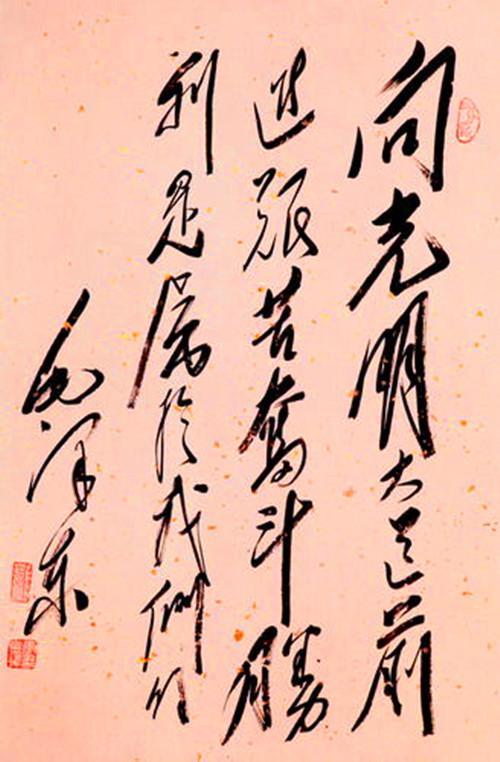 向光明大道前
进艰苦奮斗勝
利是属於我們的
毛泽东